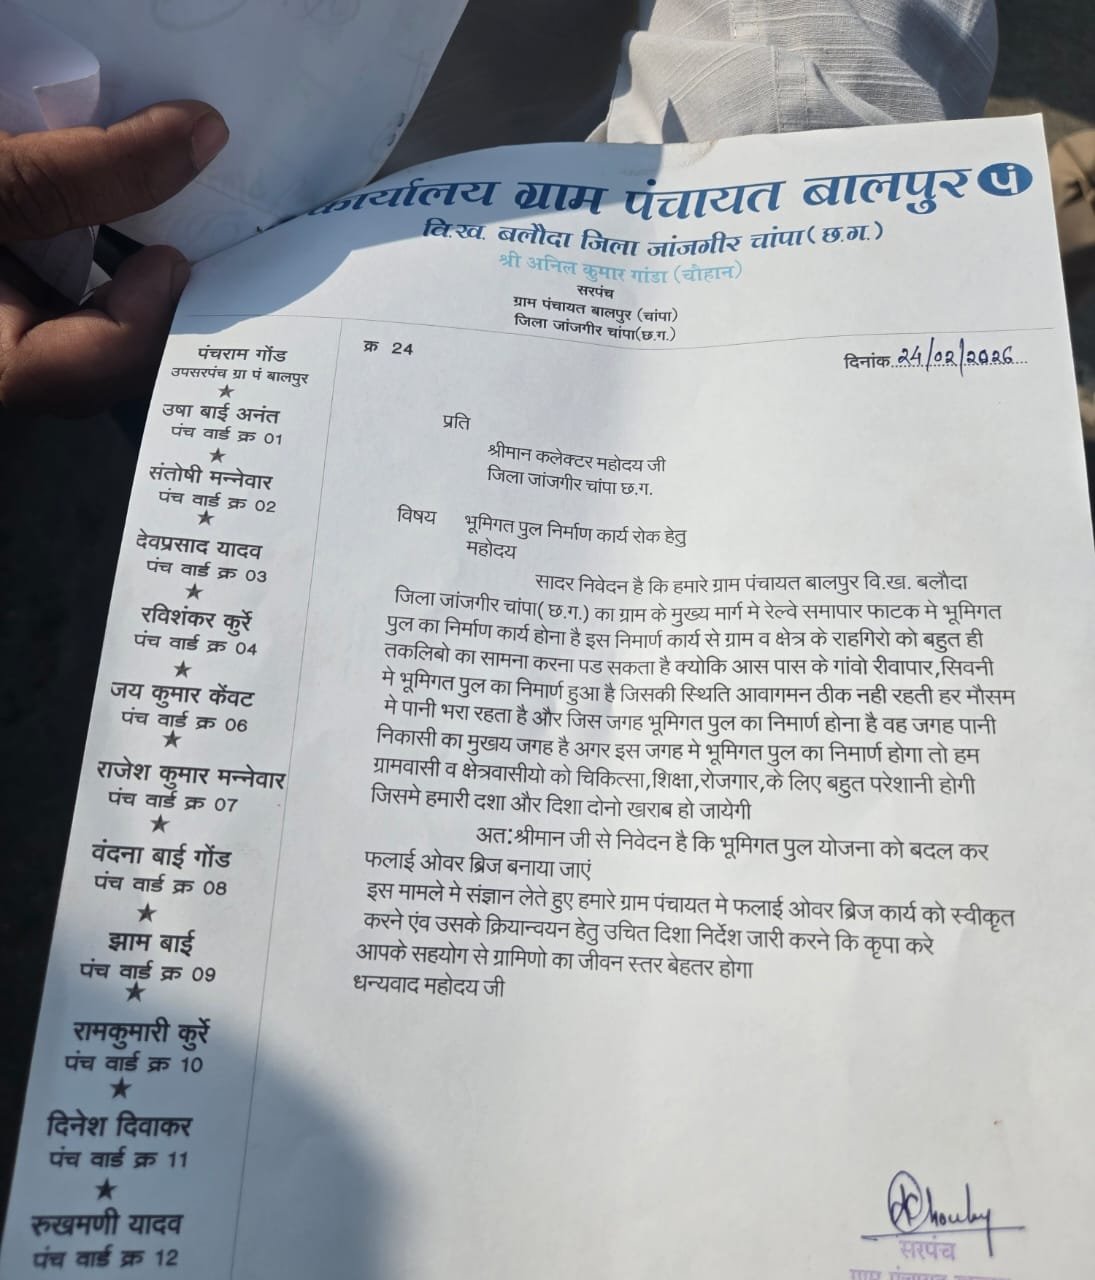 कार्यालय ग्राम पंचायत बालपुर पं
वि.ख. बलौदा जिला जांजगीर चांपा(छ.ग.)
श्री अनिल कुमार गांडा (चौहान)
सरपंच
ग्राम पंचायत बालपुर (चांपा)
जिला जांजगीर चांपा(छ.ग.)
पंचराम गोंड
उपसरपंच ग्रा पं बालपुर
★
उषा बाई अनंत
पंच वार्ड क्र 01
★
संतोषी मन्नेवार
पंच वार्ड क्र 02
★
देवप्रसाद यादव
पंच वार्ड क्र 03
★
रविशंकर कुर्रे
पंच वार्ड क्र 04
★
जय कुमार केंवट
पंच वार्ड क्र 06
★
राजेश कुमार मन्नेवार
पंच वार्ड क्र 07
★
वंदना बाई गोंड
पंच वार्ड क्र 08
★
झाम बाई
पंच वार्ड क्र 09
★
रामकुमारी कुर्रे
पंच वार्ड क्र 10
★
दिनेश दिवाकर
पंच वार्ड क्र 11
★
रुखमणी यादव
पंच वार्ड क्र 12
क्र 24
दिनांक 24/02/2026
प्रति
श्रीमान कलेक्टर महोदय जी
जिला जांजगीर चांपा छ.ग.
विषय भूमिगत पुल निर्माण कार्य रोक हेतु
महोदय
सादर निवेदन है कि हमारे ग्राम पंचायत बालपुर वि.ख. बलौदा
जिला जांजगीर चांपा( छ.ग.) का ग्राम के मुख्य मार्ग मे रेल्वे समापार फाटक मे भूमिगत
पुल का निर्माण कार्य होना है इस निमार्ण कार्य से ग्राम व क्षेत्र के राहगिरो को बहुत ही
तकलिबो का सामना करना पड सकता है क्योकि आस पास के गांवो रीवापार,सिवनी
मे भूमिगत पुल का निमार्ण हुआ है जिसकी स्थिति आवागमन ठीक नही रहती हर मौसम
मे पानी भरा रहता है और जिस जगह भूमिगत पुल का निमार्ण होना है वह जगह पानी
निकासी का मुखय जगह है अगर इस जगह मे भूमिगत पुल का निमार्ण होगा तो हम
ग्रामवासी व क्षेत्रवासीयो को चिकित्सा,शिक्षा,रोजगार,के लिए बहुत परेशानी होगी
जिसमे हमारी दशा और दिशा दोनो खराब हो जायेगी
अत:श्रीमान जी से निवेदन है कि भूमिगत पुल योजना को बदल कर
फलाई ओवर ब्रिज बनाया जाएं
इस मामले मे संज्ञान लेते हुए हमारे ग्राम पंचायत मे फलाई ओवर ब्रिज कार्य को स्वीकृत
करने एंव उसके क्रियान्वयन हेतु उचित दिशा निर्देश जारी करने कि कृपा करे
आपके सहयोग से ग्रामिणो का जीवन स्तर बेहतर होगा
धन्यवाद महोदय जी
सरपंच
ग्राम पंचायत